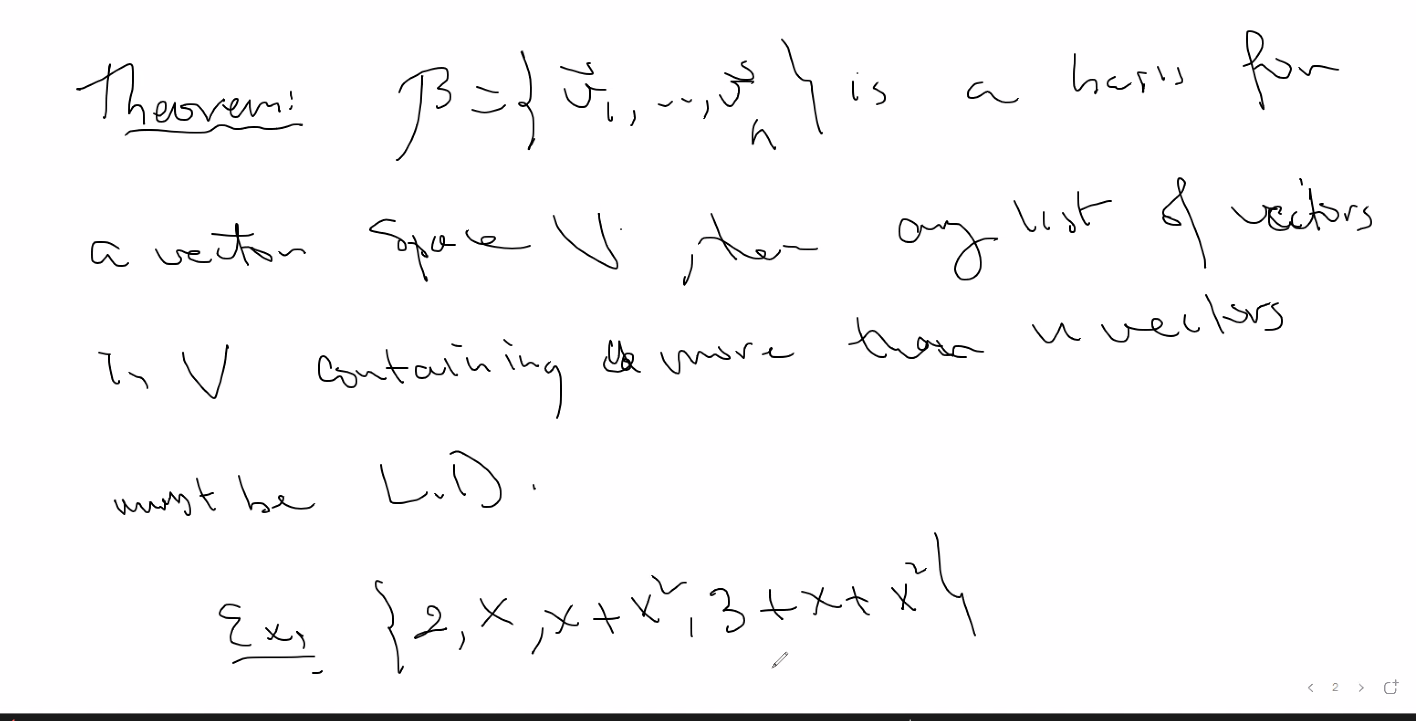 Theorem: β = { v⃗₁, ..., v⃗ₙ } is a basis for
a vector space V, then any list of vectors
in V containing more than n vectors
must be L.D.
Ex, { 2, x, x + x², 3 + x + x² }
2